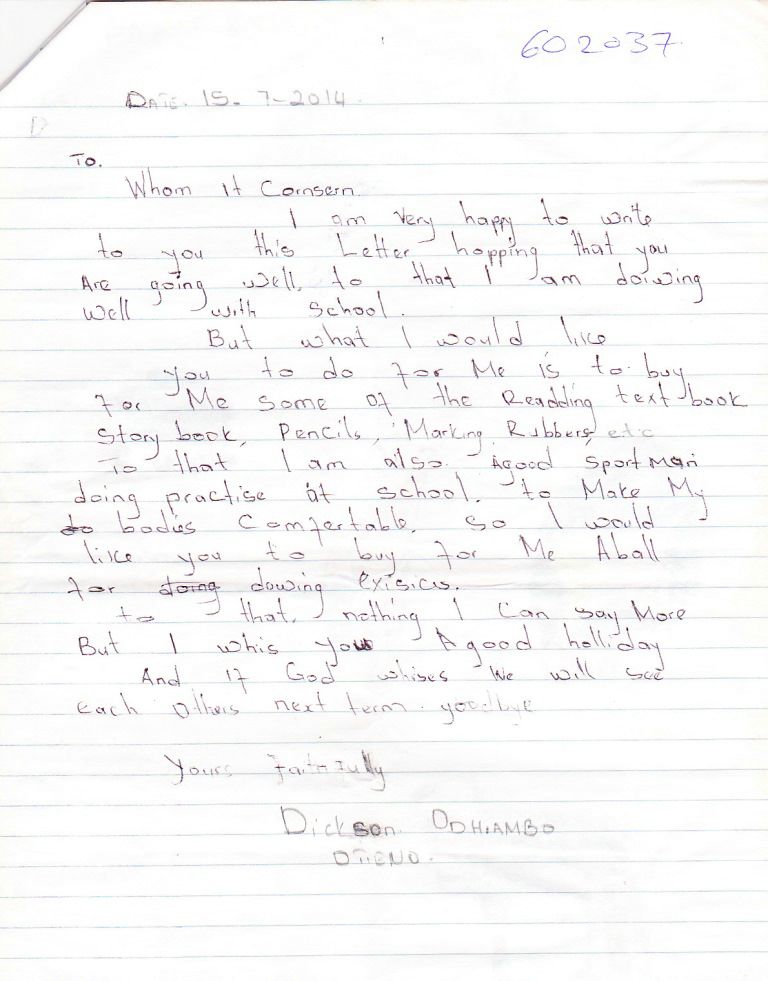 602037
DATE. 15- 7-2014.
D
To.
Whom It Cornsern
I am Very happy to write
to you this Letter hopping that you
Are going well, to that I am doiwing
well with School.
But what I would like
you to do for Me is to buy
for Me some of the Readding text book
Story book, Pencils, Marking Rubbers etc
To that I am also Agood Sport Man
doing practise at school. to Make My
to bodies Comfertable, so I would
like you to buy for Me Aball
for doing dowing Exisics.
to that, nothing I Can say More
But I whis you A good holliday
And If God whises We will see
each others next term. goodbye
Yours faithfully
Dickson ODHIAMBO
OTIENO.